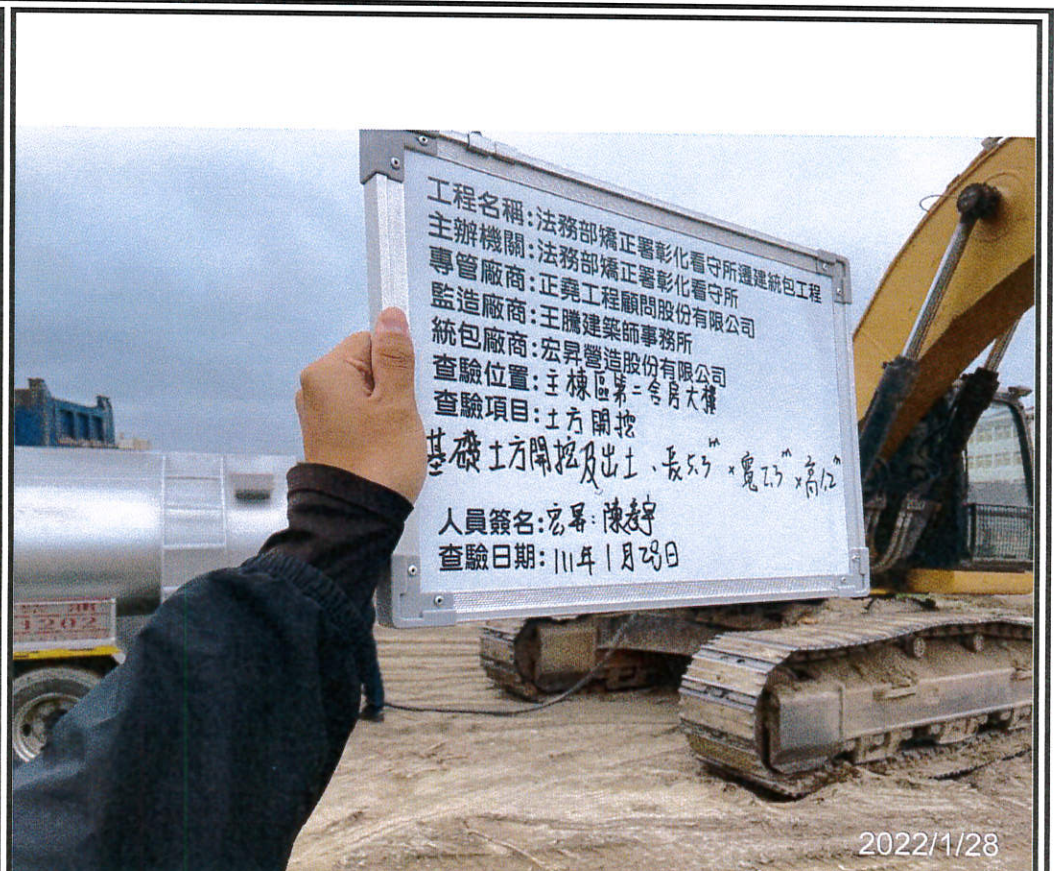 工程名稱:法務部矯正署彰化看守所遷建統包工程
主辦機關:法務部矯正署彰化看守所
專管廠商:正堯工程顧問股份有限公司
監造廠商:王騰建築師事務所
統包廠商:宏昇營造股份有限公司
查驗位置:主棟區第二舍房大樓
查驗項目:土方開挖
基礎土方開挖及出土、長5.5m×寬2.5m×高1.2m
人員簽名:宏昇:陳彥宇
查驗日期:111年1月28日
2022/1/28